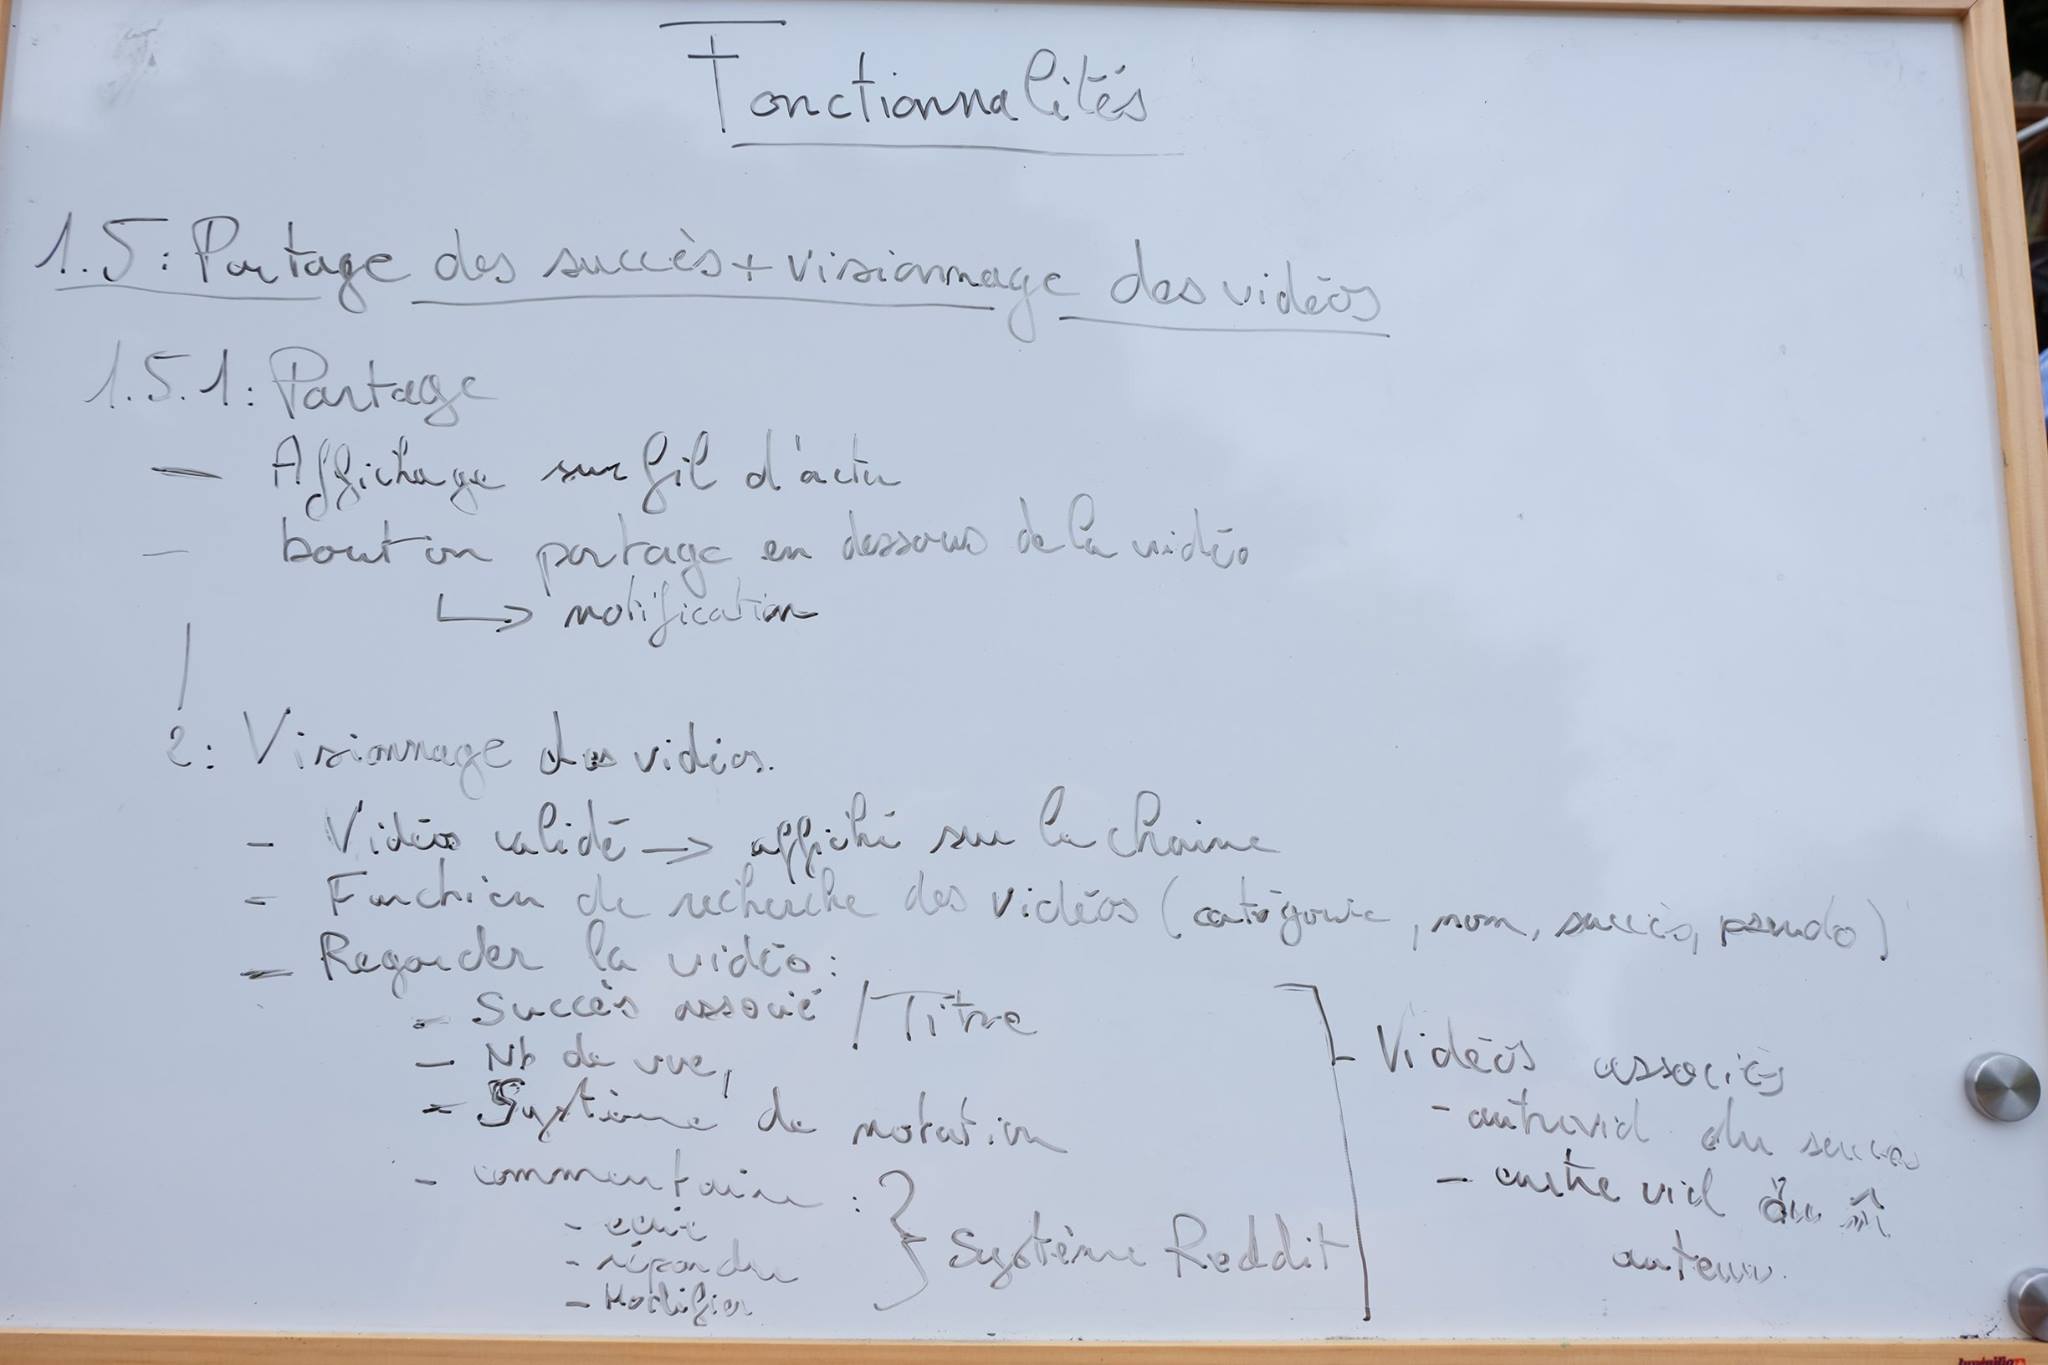 Fonctionnalités
1.5: Partage des succès + visionnage des vidéos
1.5.1: Partage
— Affichage sur fil d'actu
— bouton partage en dessous de la vidéo
↳ notification
2: Visionnage des vidéos.
- Vidéo validé → affiché sur la chaine
- Fonction de recherche des vidéos (catégorie, nom, succès, pseudo)
- Regarder la vidéo:
- Succès associé / Titre
- Nb de vue,
- Système de notation
- commentaire :
- écrir
- répondre
- Modifier
} Système Reddit
- Vidéos associés
- autre vid du succès
- autre vid du m̂
auteur.